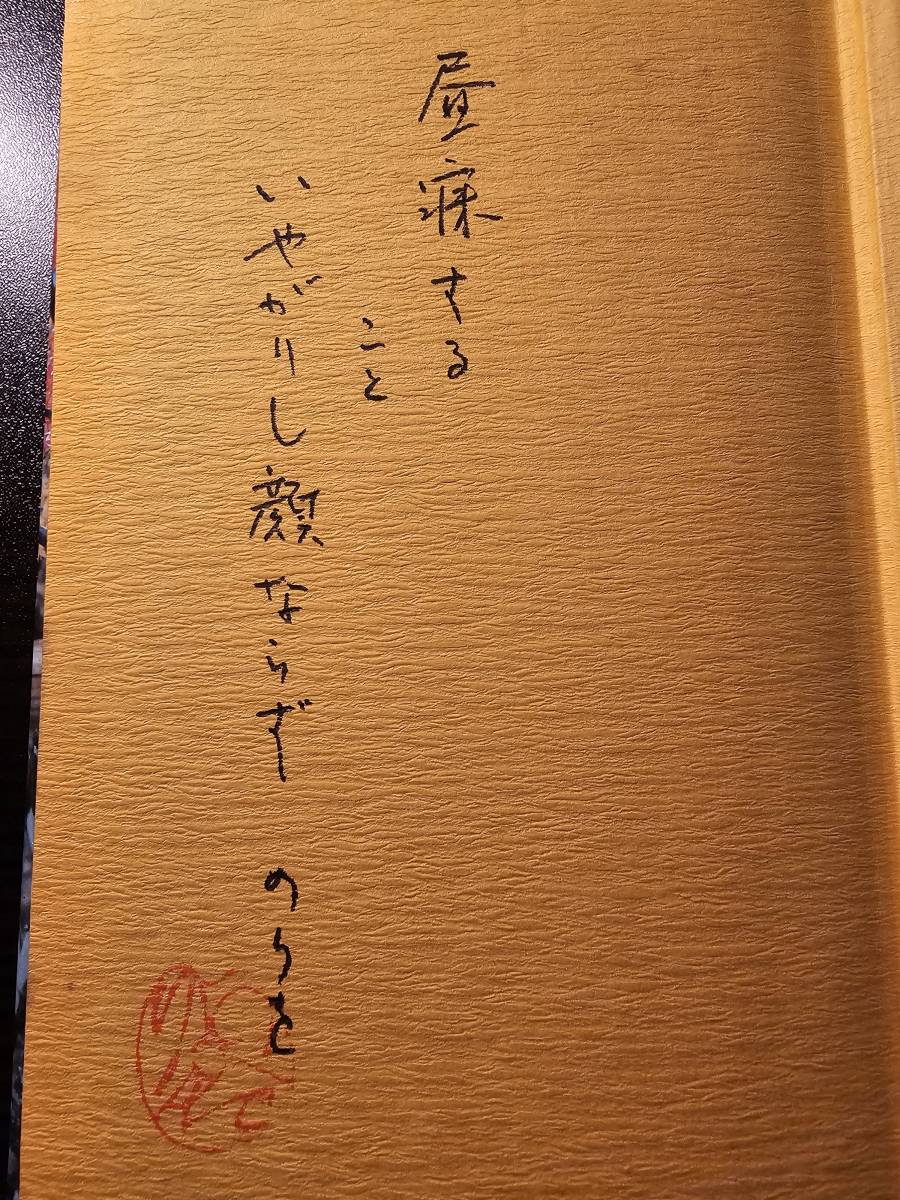 昼寐する
こと
いやがりし顔ならず のらを